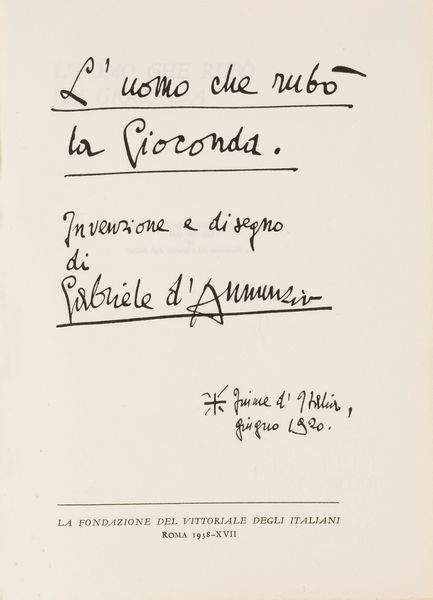 L'uomo che rubò
la Gioconda.
Invenzione e disegno
di
Gabriele d'Annunzio
Fiume d'Italia,
giugno 1920.
LA FONDAZIONE DEL VITTORIALE DEGLI ITALIANI
ROMA 1938-XVII